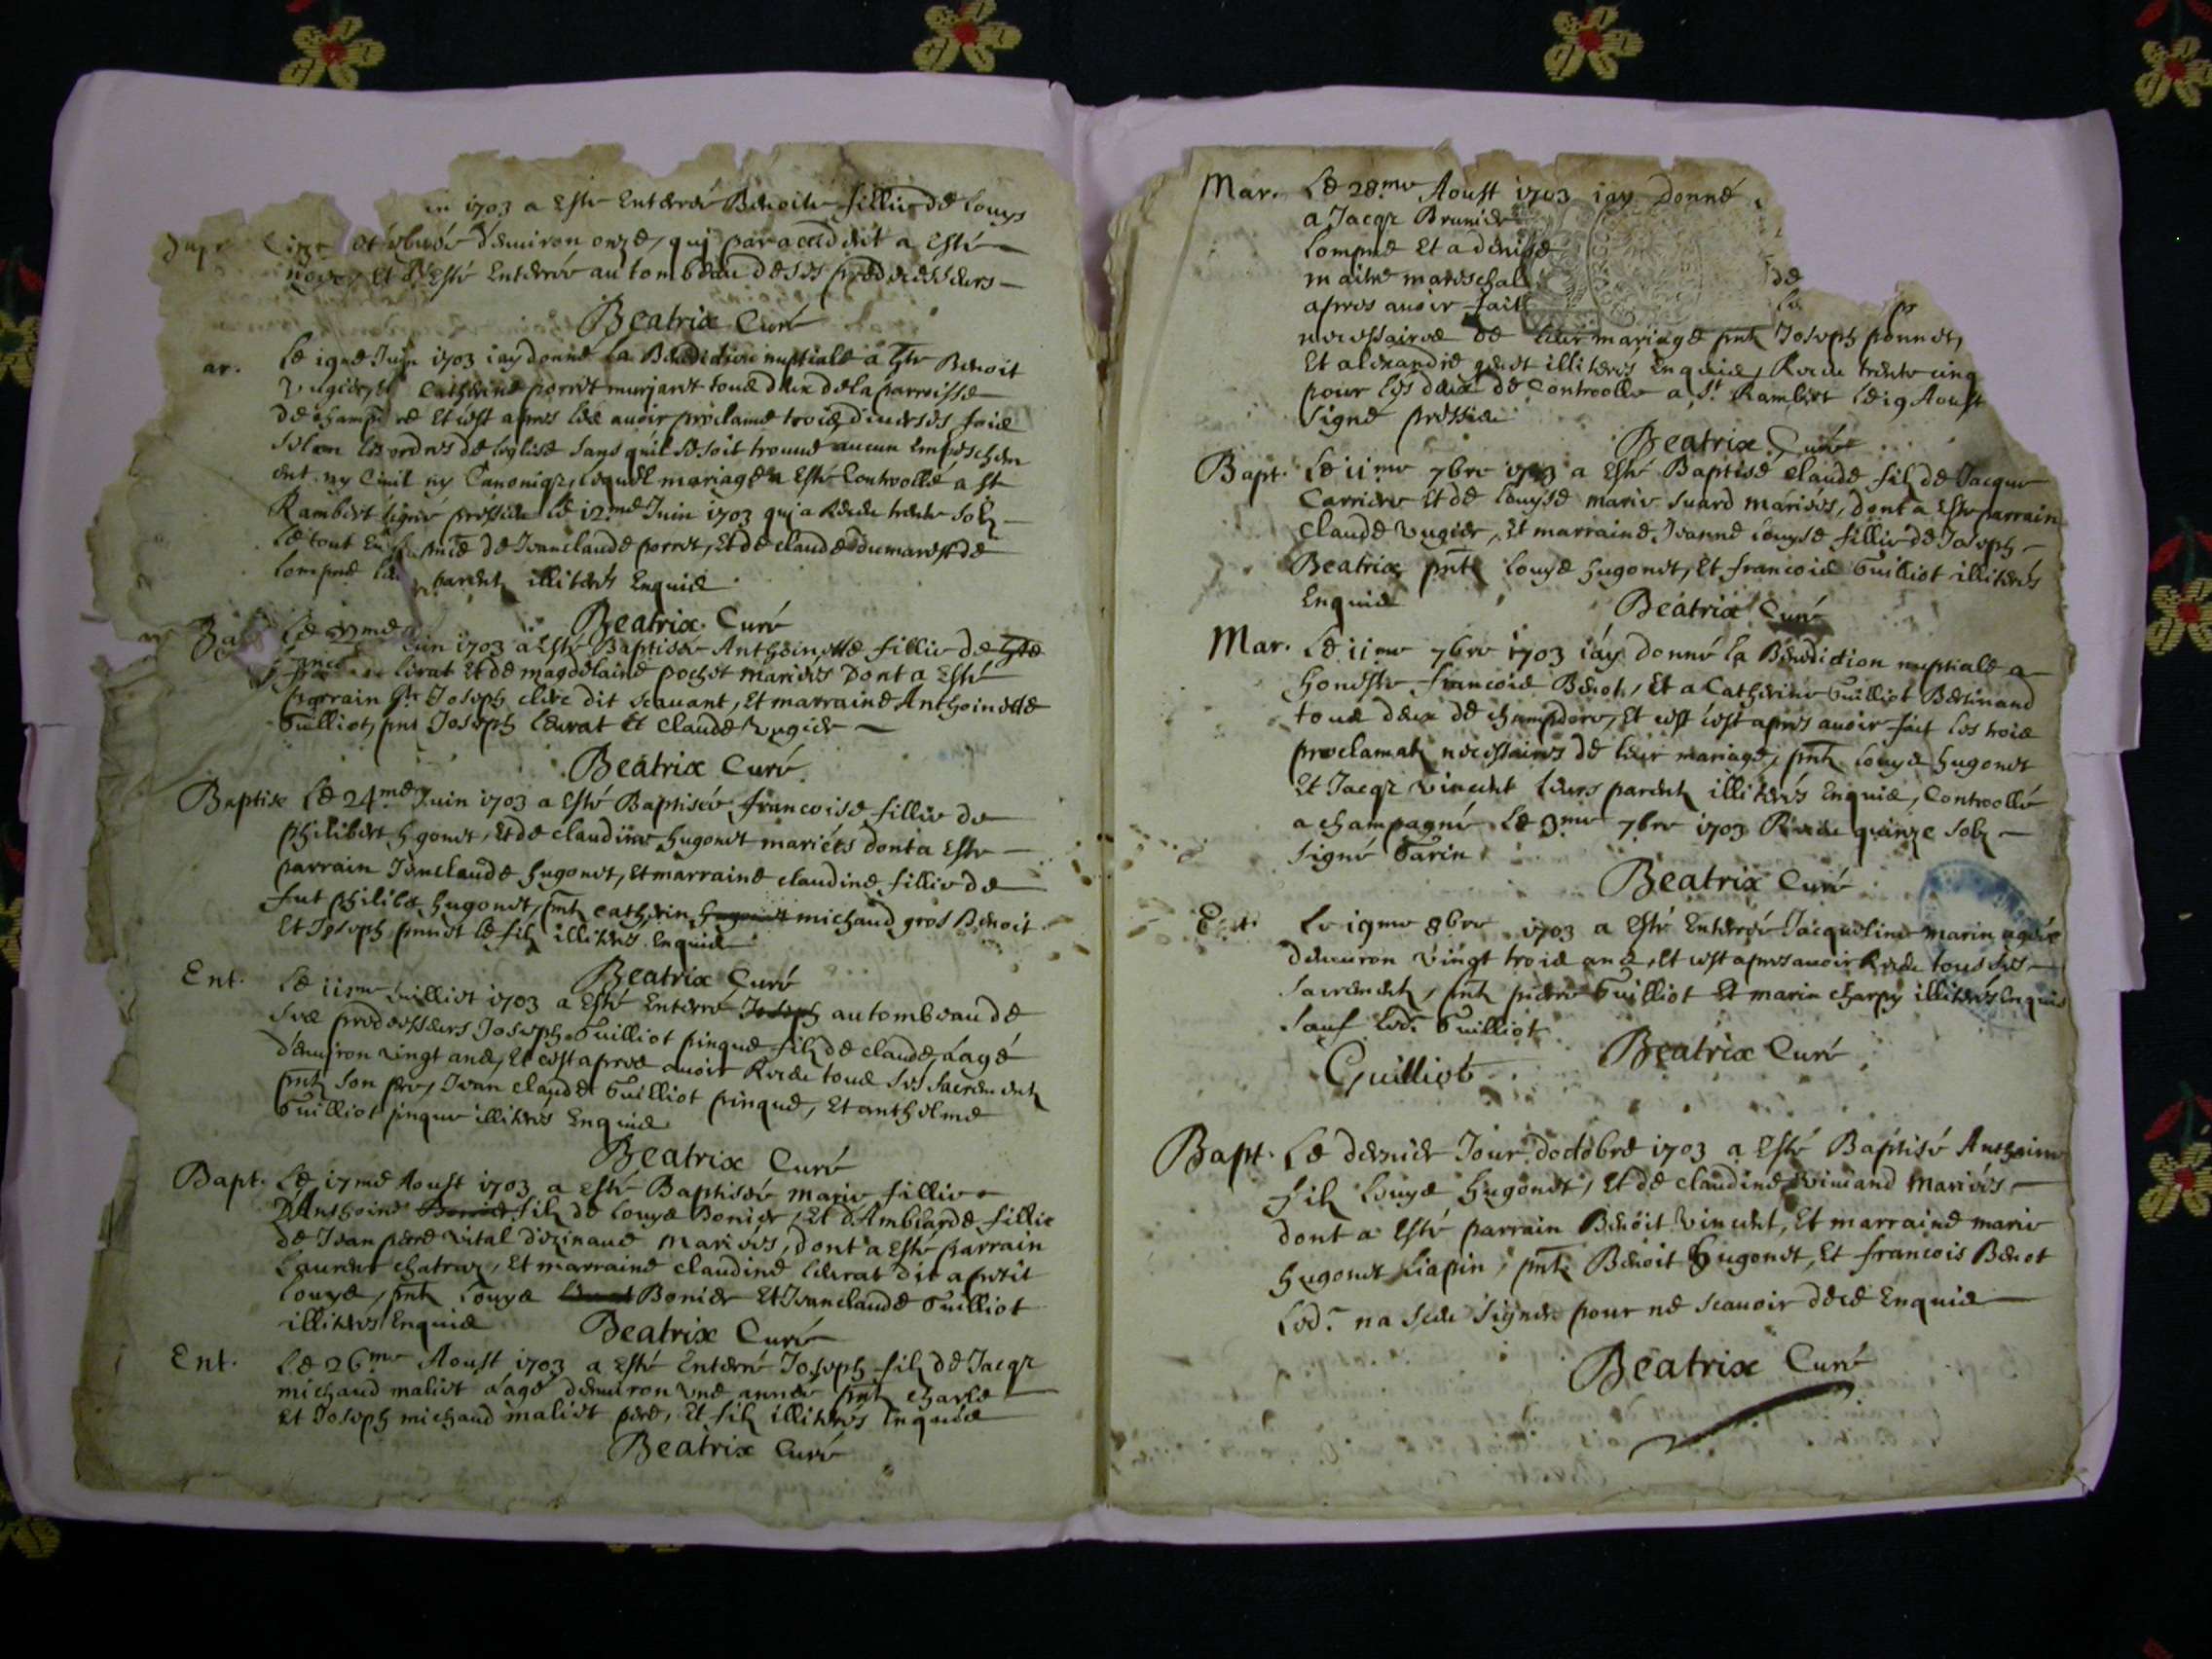 1703 a Esté Enterrée Benoite fillie de Louys
d'enuiron onze, qui par accedent a Esté
noyee, Et a Esté Enterrée au tombeau de ses predecesseurs
Beatrix Curé
ar. Le 19me Juin 1703 iay donné la Benediction nuptiale a hte Benoit
Vugier, Catherine porret murjaret tous deux de la parroisse
de champ et c'est apres les auoir proclamé trois diuerses fois
selon les ordres de leglise sans quil se soit trouué aucun Empeschem
ent ny Ciuil ny Canoniqz, lequel mariage a Esté Controollé a St
Rambert signé pressieu le 12me Juin 1703 qui a Receu trente solz
Le tout En de Jean claude porret, Et de claude dumarest de
Lompne parentz illiterés Enquis
Beatrix Curé
Le Juin 1703 a Esté Baptisée Anthoinette fillie de hte
Et de magdelaine pochet mariés Dont a Esté
parrain Joseph clerc dit scauant, Et marraine Anthoinette
Guilliot, pnt Joseph Leurat Et Claude Vugier
Beatrix Curé
Baptise Le 24me Juin 1703 a Esté Baptisée francoise fillie de
philibert hgonet, Et de claudine hugonet mariés dont a Esté
parrain Jeanclaude hugonet, Et marraine claudine fillie de
fut philibe hugonet, pntz catherin michaud gros Benoit
Et Joseph ponnet le filz illiterés Enquis
Beatrix Curé
Ent. Le 11me Juilliet 1703 a Esté Enterré Joseph au tombeau de
ses predecesseurs Joseph Guilliot pinque filz de claude, aagé
d'enuiron vingt ans, Et c'est apres auoir Receu tous ses sacrementz
pntz son pere, Jean claude Guilliot pinque, Et anthelme
Guilliot pinque illiterés Enquis
Beatrix Curé
Bapt. Le 17me Aoust 1703 a Esté Baptisée marie fillie
D'Anthoine filz de Louys Bonier, Et d'Amblarde fillie
de Jean pierre vital mariés, dont a Esté parrain
Laurent chatraz, Et marraine claudine Leurat dit a petit
Louys, pntz Louys Bonier Et Jeanclaude Guilliot
illiterés Enquis
Beatrix Curé
Ent. Le 26me Aoust 1703 a Esté Enterré Joseph filz de Jacqz
michaud maliet aagé denuiron vne année pntz charle
Et Joseph michaud maliet pere, Et filz illiterés Enquis
Beatrix Curé
Mar. Le 28me Aoust 1703 iay Donné
a Jacqz Brunier
Lompne Et a denise
maitre mareschal de
apres auoir fait
necessaires de Leur mariage pntz Joseph ponnet,
Et alexandre genet illiterés Enquis, Receu trente cinq
pour les deux de Controolle a St Rambert Le 19 Aoust
signé pressieu
Beatrix Curé
Bapt. Le 11me 7bre 1703 a Esté Baptisé claude filz de Jacque
Carrier Et de Louyse marie suard mariés, dont a Esté parrain
Claude Vugier, Et marraine Jeanne Louyse fillie de Joseph
Beatrix pntz Louys hugonet, Et francois Guilliot illiterés
Enquis
Beatrix Curé
Mar. Le 11me 7bre 1703 iay donné la Benediction nuptiale a
honeste francois Benet, Et a Catherine Guilliot Bertinand
tous deux de champdore, Et cest cest apres auoir fait les trois
proclamatz necessaires de leur mariage, pntz Louys hugonet
Et Jacqz vincent leurs parentz illiterés Enquis, Controollé
a champagne Le 3me 7bre 1703 Receu quinze solz
signé Garin
Beatrix Curé
Ent. Le 19me 8bre 1703 a Esté Enterrée Jacqueline marin agée
denuiron vingt trois ans, Et cest apres auoir Receu tous ses
sacrementz, pntz pierre Guilliot Et marin charpy illiterés Enquis
sauf Led. Guilliot
Guilliot Beatrix Curé
Bapt. Le dernier Jour doctobre 1703 a Esté Baptisé Anthoine
filz Louys hugonet, Et de claudine mariés
dont a Esté parrain Benoit Vincent, Et marraine marie
hugonet Liapin, pntz Benoit hugonet, Et francois Benet
Led. na sceu signer pour ne scauoir de ce Enquis
Beatrix Curé